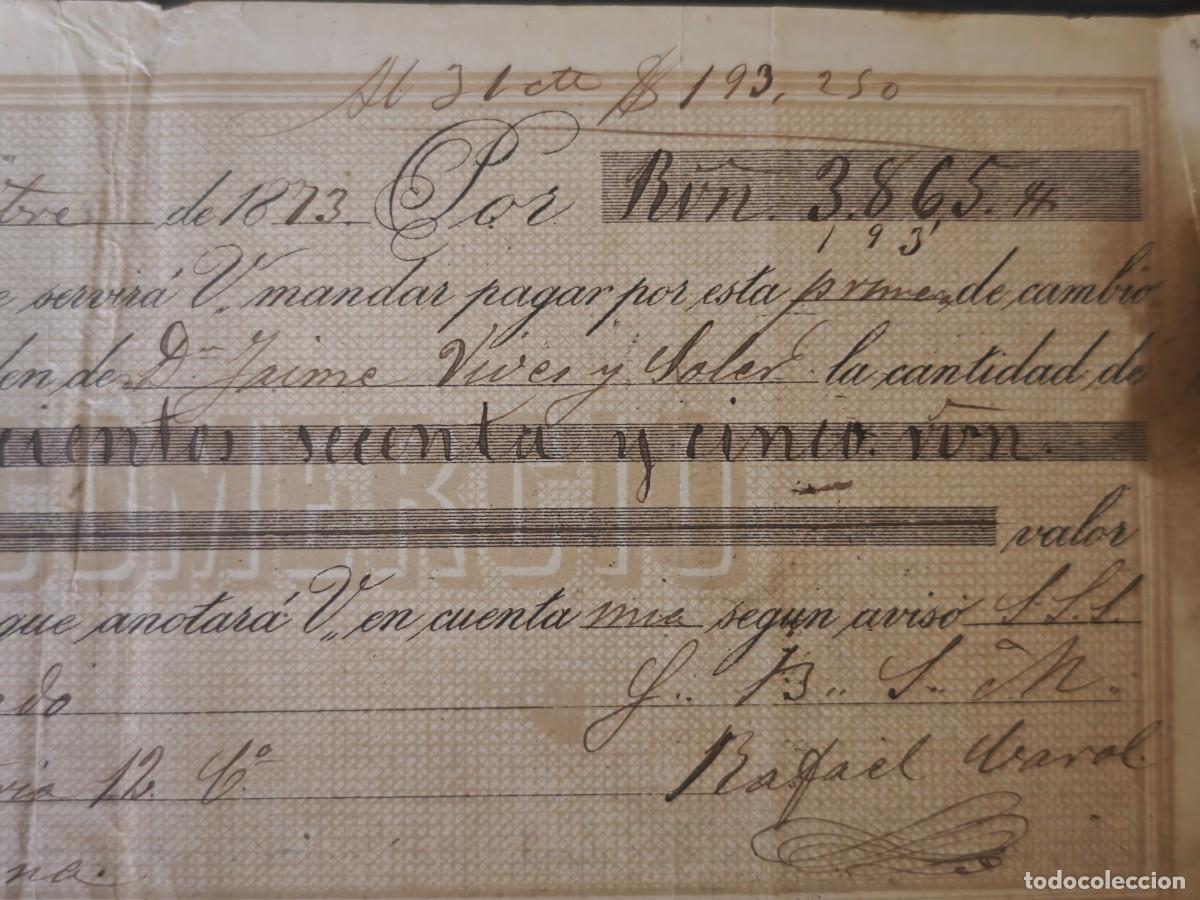 Al 31 cte $ 193,250
tre de 1873. Por Rvn. 3.865.
193
e servirá V. mandar pagar por esta primera de cambio
en de Dn Jaime Vives y Soler la cantidad de
cientos secenta y cinco. rvn.
COMERCIO
valor
que anotará V. en cuenta mia segun aviso S.S.S.
do Q.. B.. S.. M.
ria 12. 
Rafael Carol
na.
todocoleccion